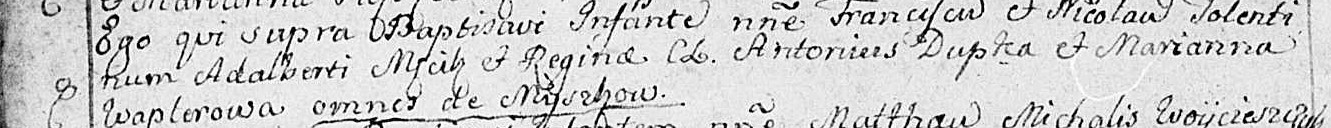 Ego qui supra Baptisavi Infante nñe Franciscu et Nicolau Tolenti
num Adalberti Mscih et Reginæ CL. Antonius Dupka et Marianna
Waplerowa omnes de Myszkow.
nñe Matthæu Michalis